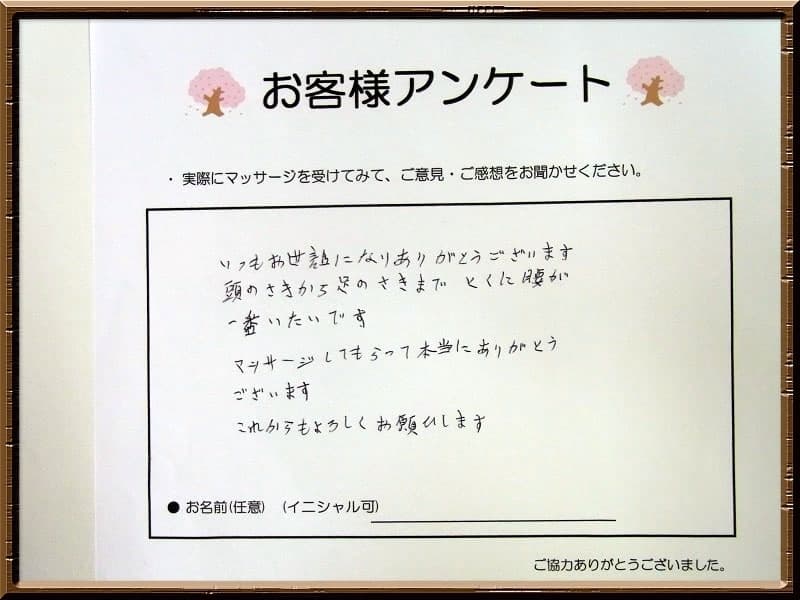 お客様アンケート
・ 実際にマッサージを受けてみて、ご意見・ご感想をお聞かせください。
いつもお世話になりありがとうございます
頭のさきから足のさきまで とくに腰が
一番いたいです
マッサージしてもらって本当にありがとう
ございます
これからもよろしくお願いします
● お名前(任意) (イニシャル可)
ご協力ありがとうございました。